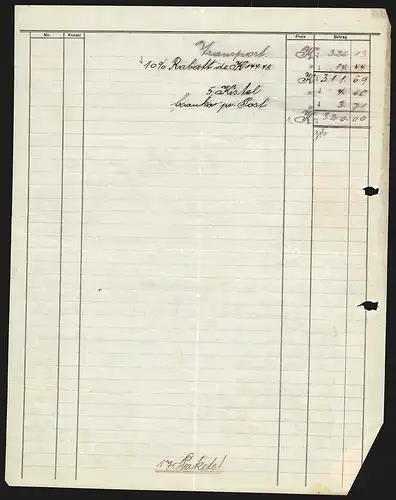 No. Anzahl Preis Betrag
Transport K 326 13
10% Rabatt de K 144.42 " 14 44
K 311 69
5 Kistel " 4 60
franko pr. Post " 3 71
K 320.00
17 Pakete!